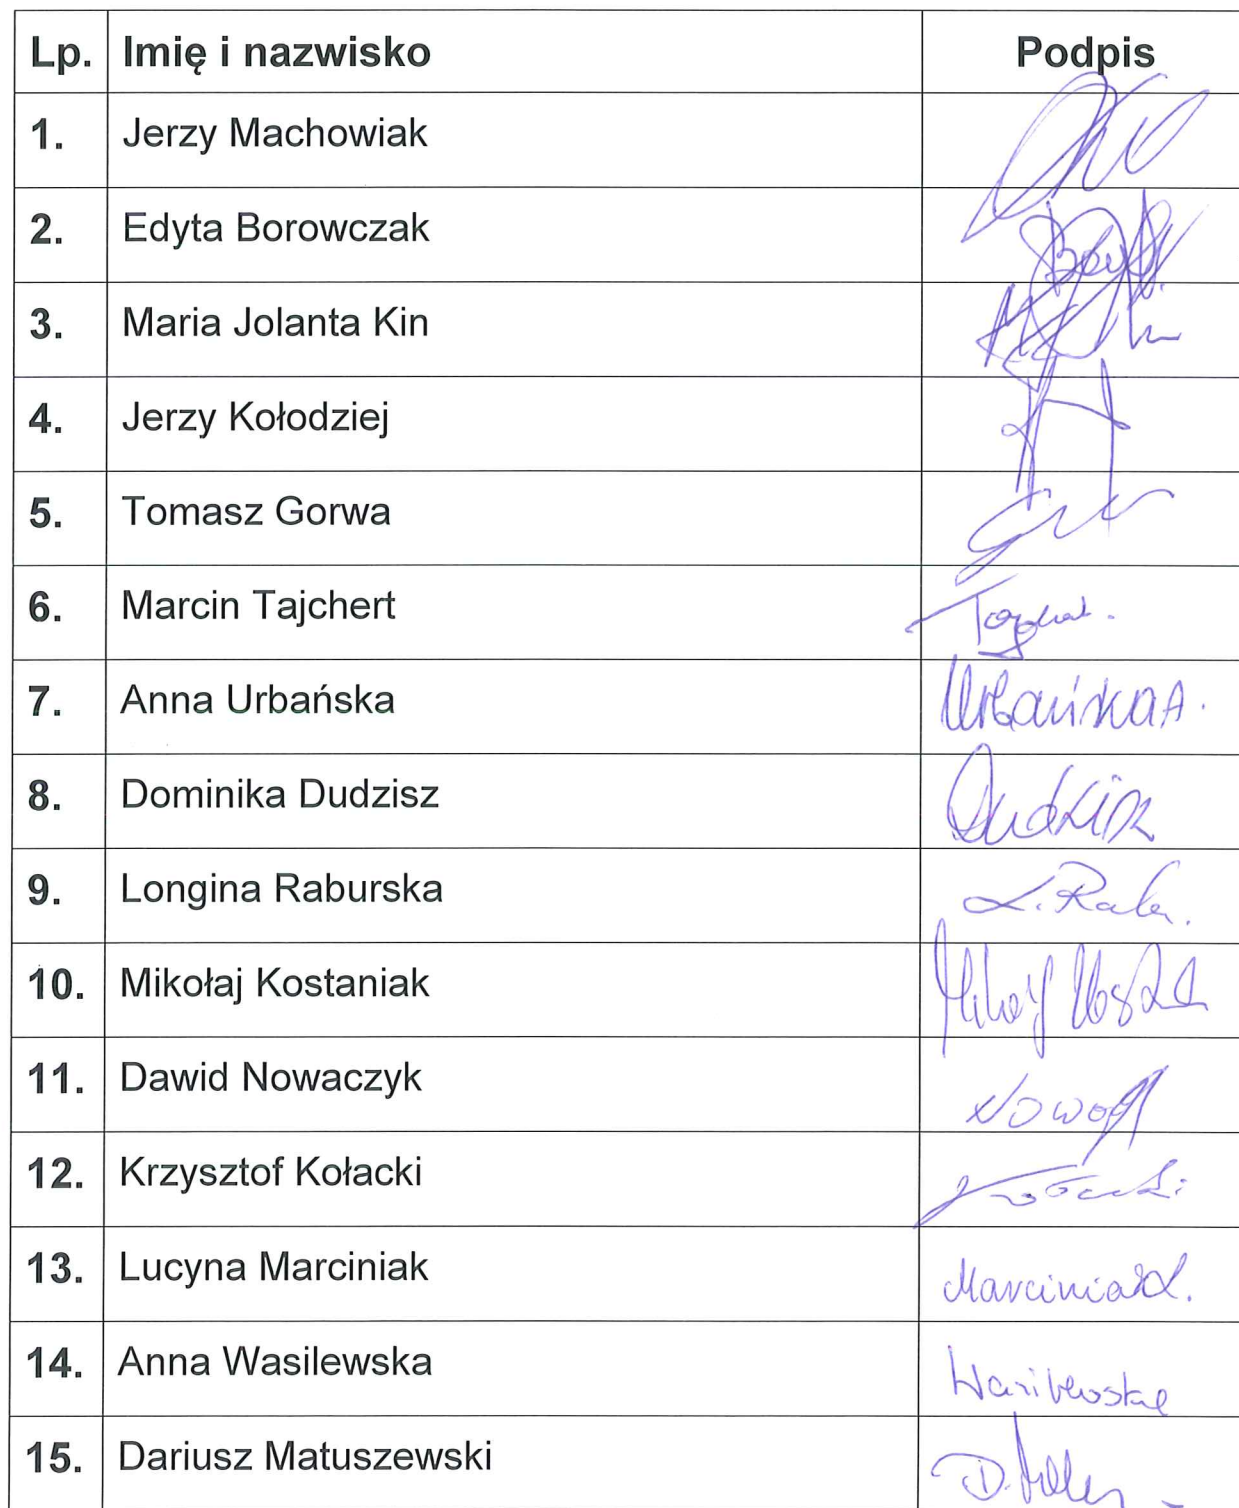 Lp. Imię i nazwisko Podpis
1. Jerzy Machowiak
2. Edyta Borowczak
3. Maria Jolanta Kin
4. Jerzy Kołodziej
5. Tomasz Gorwa
6. Marcin Tajchert
7. Anna Urbańska Urbańska A.
8. Dominika Dudzisz Dudzisz
9. Longina Raburska L. Rabu.
10. Mikołaj Kostaniak Mikołaj
11. Dawid Nowaczyk
12. Krzysztof Kołacki Kołacki
13. Lucyna Marciniak Marciniak L.
14. Anna Wasilewska Wasilewska
15. Dariusz Matuszewski D.